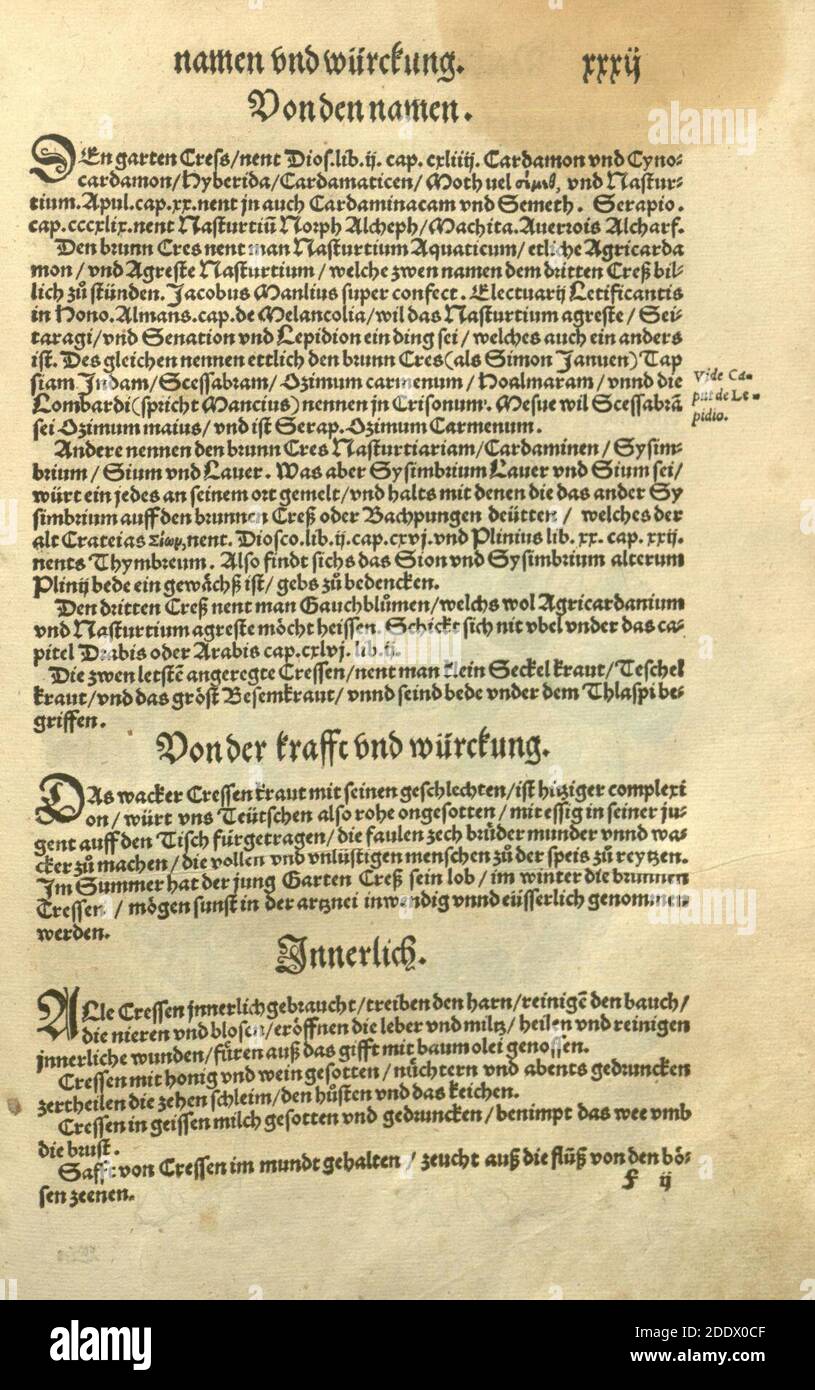 namen vnd würckung. xxxij
Von den namen.
DEn garten Cress/nent Dios.lib.ij. cap. cxliiij. Cardamon vnd Cyno-
cardamon/Hyberida/Cardamaticen/Moth uel vnd Nastur-
tium. Apul.cap.xx.nent jn auch Cardaminacam vnd Semeth. Serapio.
cap.cccxlix.nent Nasturtiū Norph Alcheph/Machita. Auerrois Alcharf.
Den brunn Cres nent man Nasturtium Aquaticum/etliche Agricarda
mon/vnd Agreste Nasturtium/welche zwen namen dem dritten Creß bil-
lich zů stünden. Jacobus Manlius super confect. Electuarij Letificantis
in Hono. Almans.cap.de Melancolia/wil das Nasturtium agreste/Sei-
taragi/vnd Senation vnd Lepidion ein ding sei/welches auch ein anders
ist. Des gleichen nennen ettlich den brunn Cres(als Simon Januen)Tap
siam Indam/Scessabram/Ozimum carmenum/Hoalmaram/vnnd die
Lombardi(spricht Mancius)nennen jn Crisonum. Mesue wil Scessabrā
sei Ozimum maius/vnd ist Serap. Ozimum Carmenum.
Vide Ca-
put de Le-
pidio.
Andere nennen den brunn Cres Nasturtiariam/Cardaminen/Sysim-
brium/Sium vnd Lauer. Was aber Sysimbrium Lauer vnd Sium sei/
würt ein jedes an seinem ort gemelt/vnd halts mit denen die das ander Sy
simbrium auff den brunnen Creß oder Bachpungen deütten/ welches der
alt Crateias nent. Diosco.lib.ij.cap.cxvj.vnd Plinius lib.xx.cap.xxij.
nents Thymbreum. Also findt sichs das Sion vnd Sysimbrium alterum
Plinij bede ein gewächß ist/gebs zů bedencken.
Den dritten Creß nent man Gauchblůmen/welchs wol Agricardamum
vnd Nasturtium agreste möcht heissen. Schickt sich nit vbel vnder das ca-
pitel Drabis oder Arabis cap.cxlvj.lib.ij.
Die zwen letstē angeregte Cressen/nent man klein Seckel kraut/Teschel
kraut/vnd das gröst Besemkraut/vnnd seind bede vnder dem Thlaspi be-
griffen.
Von der krafft vnd würckung.
DAs wacker Cressen kraut mit seinen geschlechten/ist hitziger complexi
on/würt vns Teütschen also rohe ongesotten/mit essig in seiner ju-
gent auff den Tisch fürgetragen/die faulen zech brüder munder vnnd wa-
cker zů machen/die vollen vnd vnlüstigen menschen zů der speis zů reytzen.
Im Summer hat der jung Garten Creß sein lob/im winter die brunnen
Cressen/mögen sunst in der artznei inwendig vnnd eüsserlich genommen
werden.
Innerlich.
ALle Cressen jnnerlich gebraucht/treiben den harn/reinigē den bauch/
die nieren vnd blosen/eröffnen die leber vnd miltz/heilen vnd reinigen
jnnerliche wunden/füren auß das gifft mit baumolei genossen.
Cressen mit honig vnd wein gesotten/nüchtern vnd abents gedruncken
zertheilen die zehen schleim/den hůsten vnd das keichen.
Cressen in geissen milch gesotten vnd gedruncken/benimpt das wee vmb
die brust.
Safft von Cressen im mundt gehalten/zeucht auß die flüß von den bö-
sen zeenen.
f ij
alamy
Image ID: 2DDX0CF
www.alamy.com